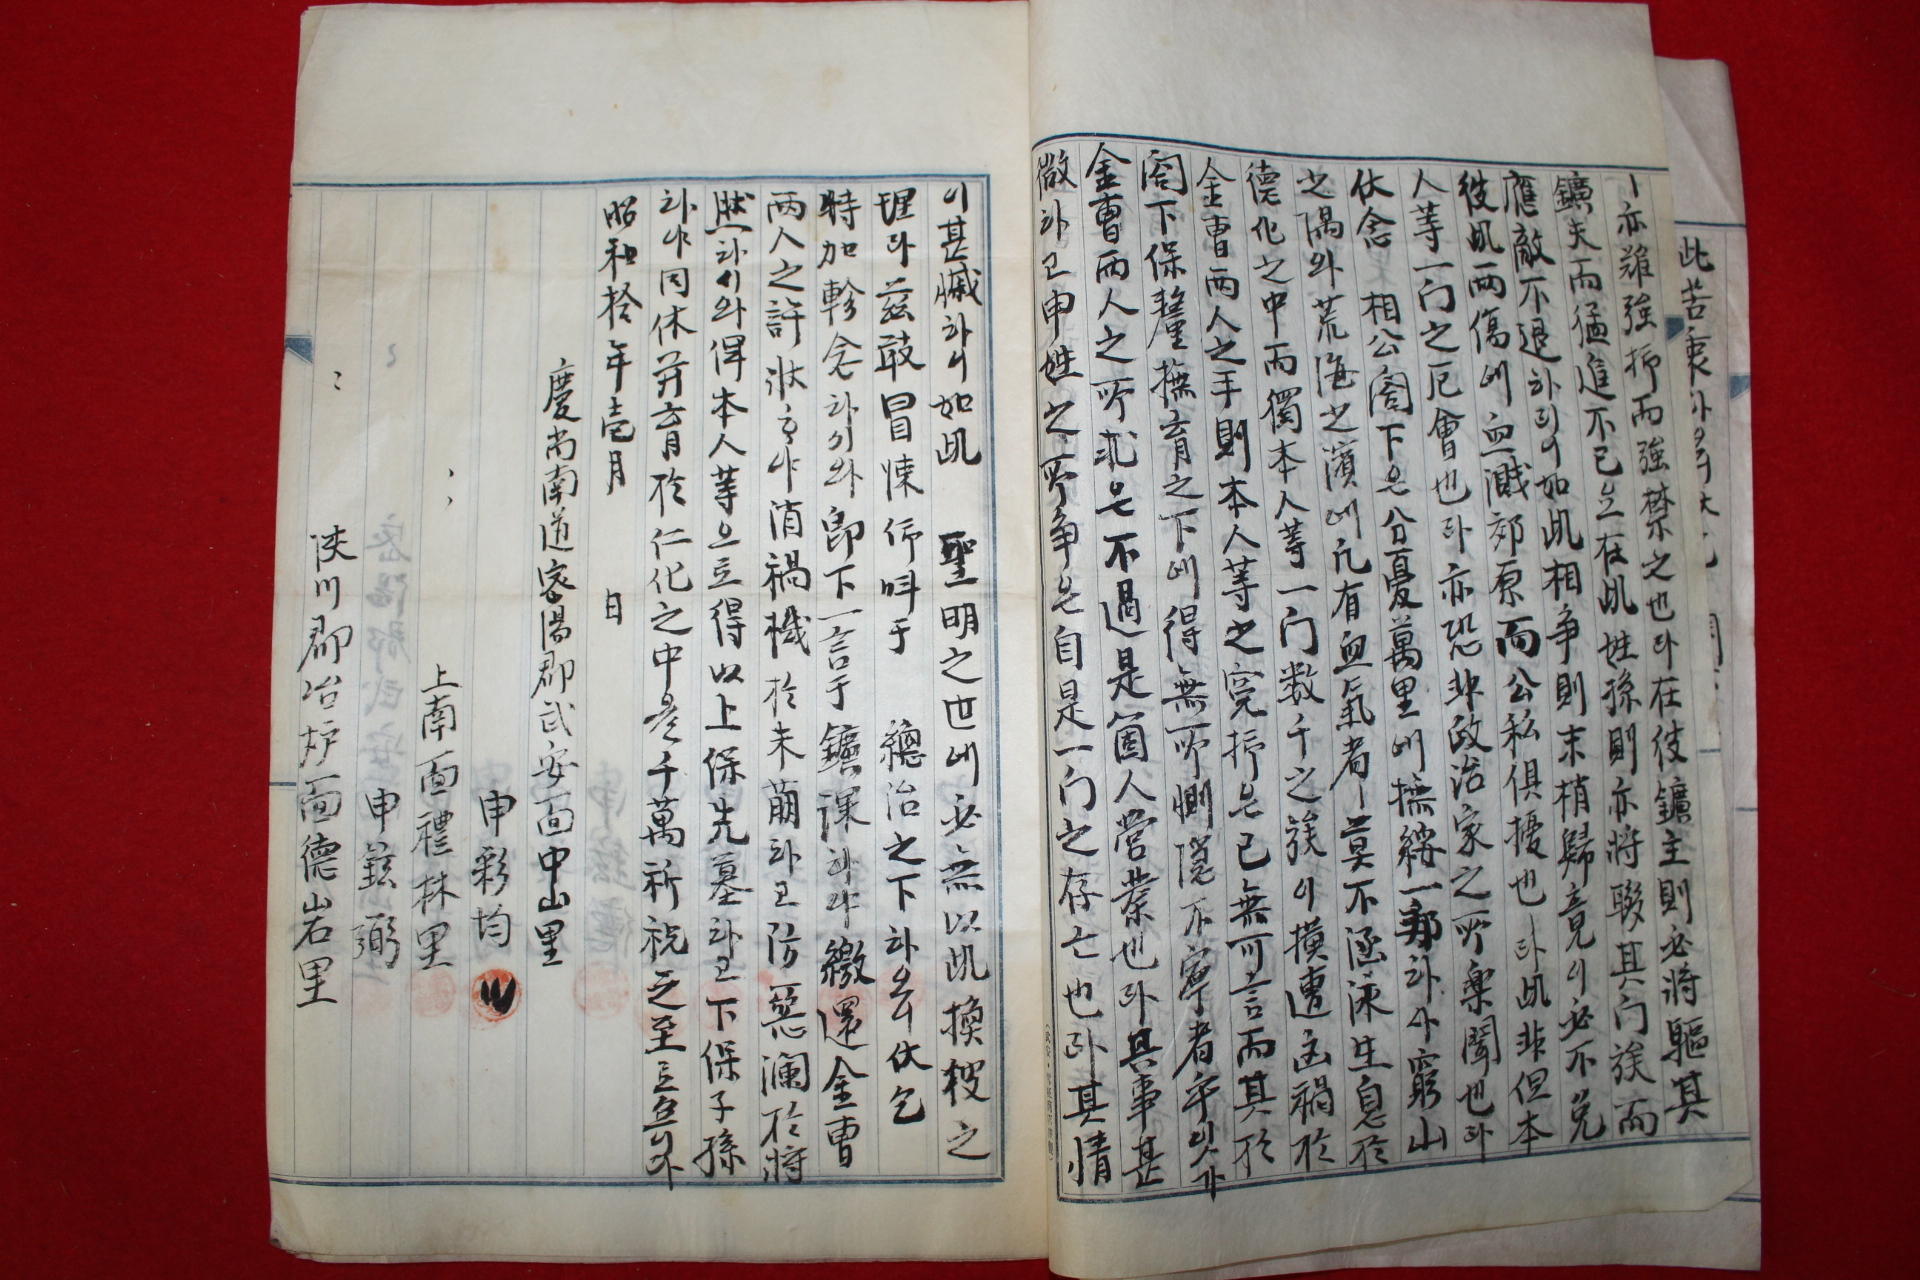 此苦衷
丨亦難強抑而強禁之也라在彼鑛主則必將驅其
鑛夫而猛進不已오在此姓孫則亦將聚其門族而
應敵不退하리니如此相爭則末梢歸竟이必不免
彼此兩傷에血濺郊原而公私俱擾也라此非但本
人等一门之厄會也라亦恐非政治家之所樂聞也라
伏念 相公閤下은分憂萬里에撫綏一邦하사窮山
之隅와荒海之濱에凡有血氣者丨莫不涵泳生息於
德化之中而獨本人等一门数千之族이橫遭函禍於
金曺兩人之手則本人等之寃抑은已無可言而其於
閤下保釐撫育之下에得無所惻隱不寧者乎잇가
金曺兩人之所求은不過是箇人營業也라其事甚
微하고申姓之所争은自是一门之存亡也라其情
이甚慽하니如此 聖明之世에必無以此換彼之
理라玆敢冒悚仰呌于 總治之下하오니伏乞
特加軫念하시와卽下一言于鑛課하야繳還金曺
兩人之許狀하야消禍機於未萠하고防惡瀾於將
然하시와俾本人等으로得以上保先墓하고下保子孫
하야同休幷育於仁化之中을千萬祈祝之至로소이다
昭和拾年壱月 日
慶尙南道密陽郡武安面中山里
申彩均
〃 上南面禮林里
申鉉弼
〃 陜川郡冶炉面德岩里